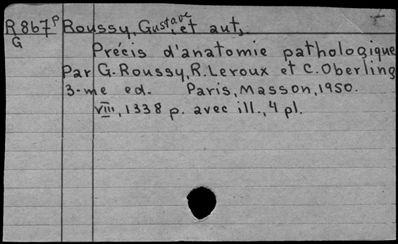 R867p Roussy, Gustave, et aut.
G
Précis d'anatomie pathologique
Par G. Roussy, R. Leroux et C. Oberling
3-me ed. Paris, Masson, 1950.
VIII, 1338 p. avec ill., 4 pl.